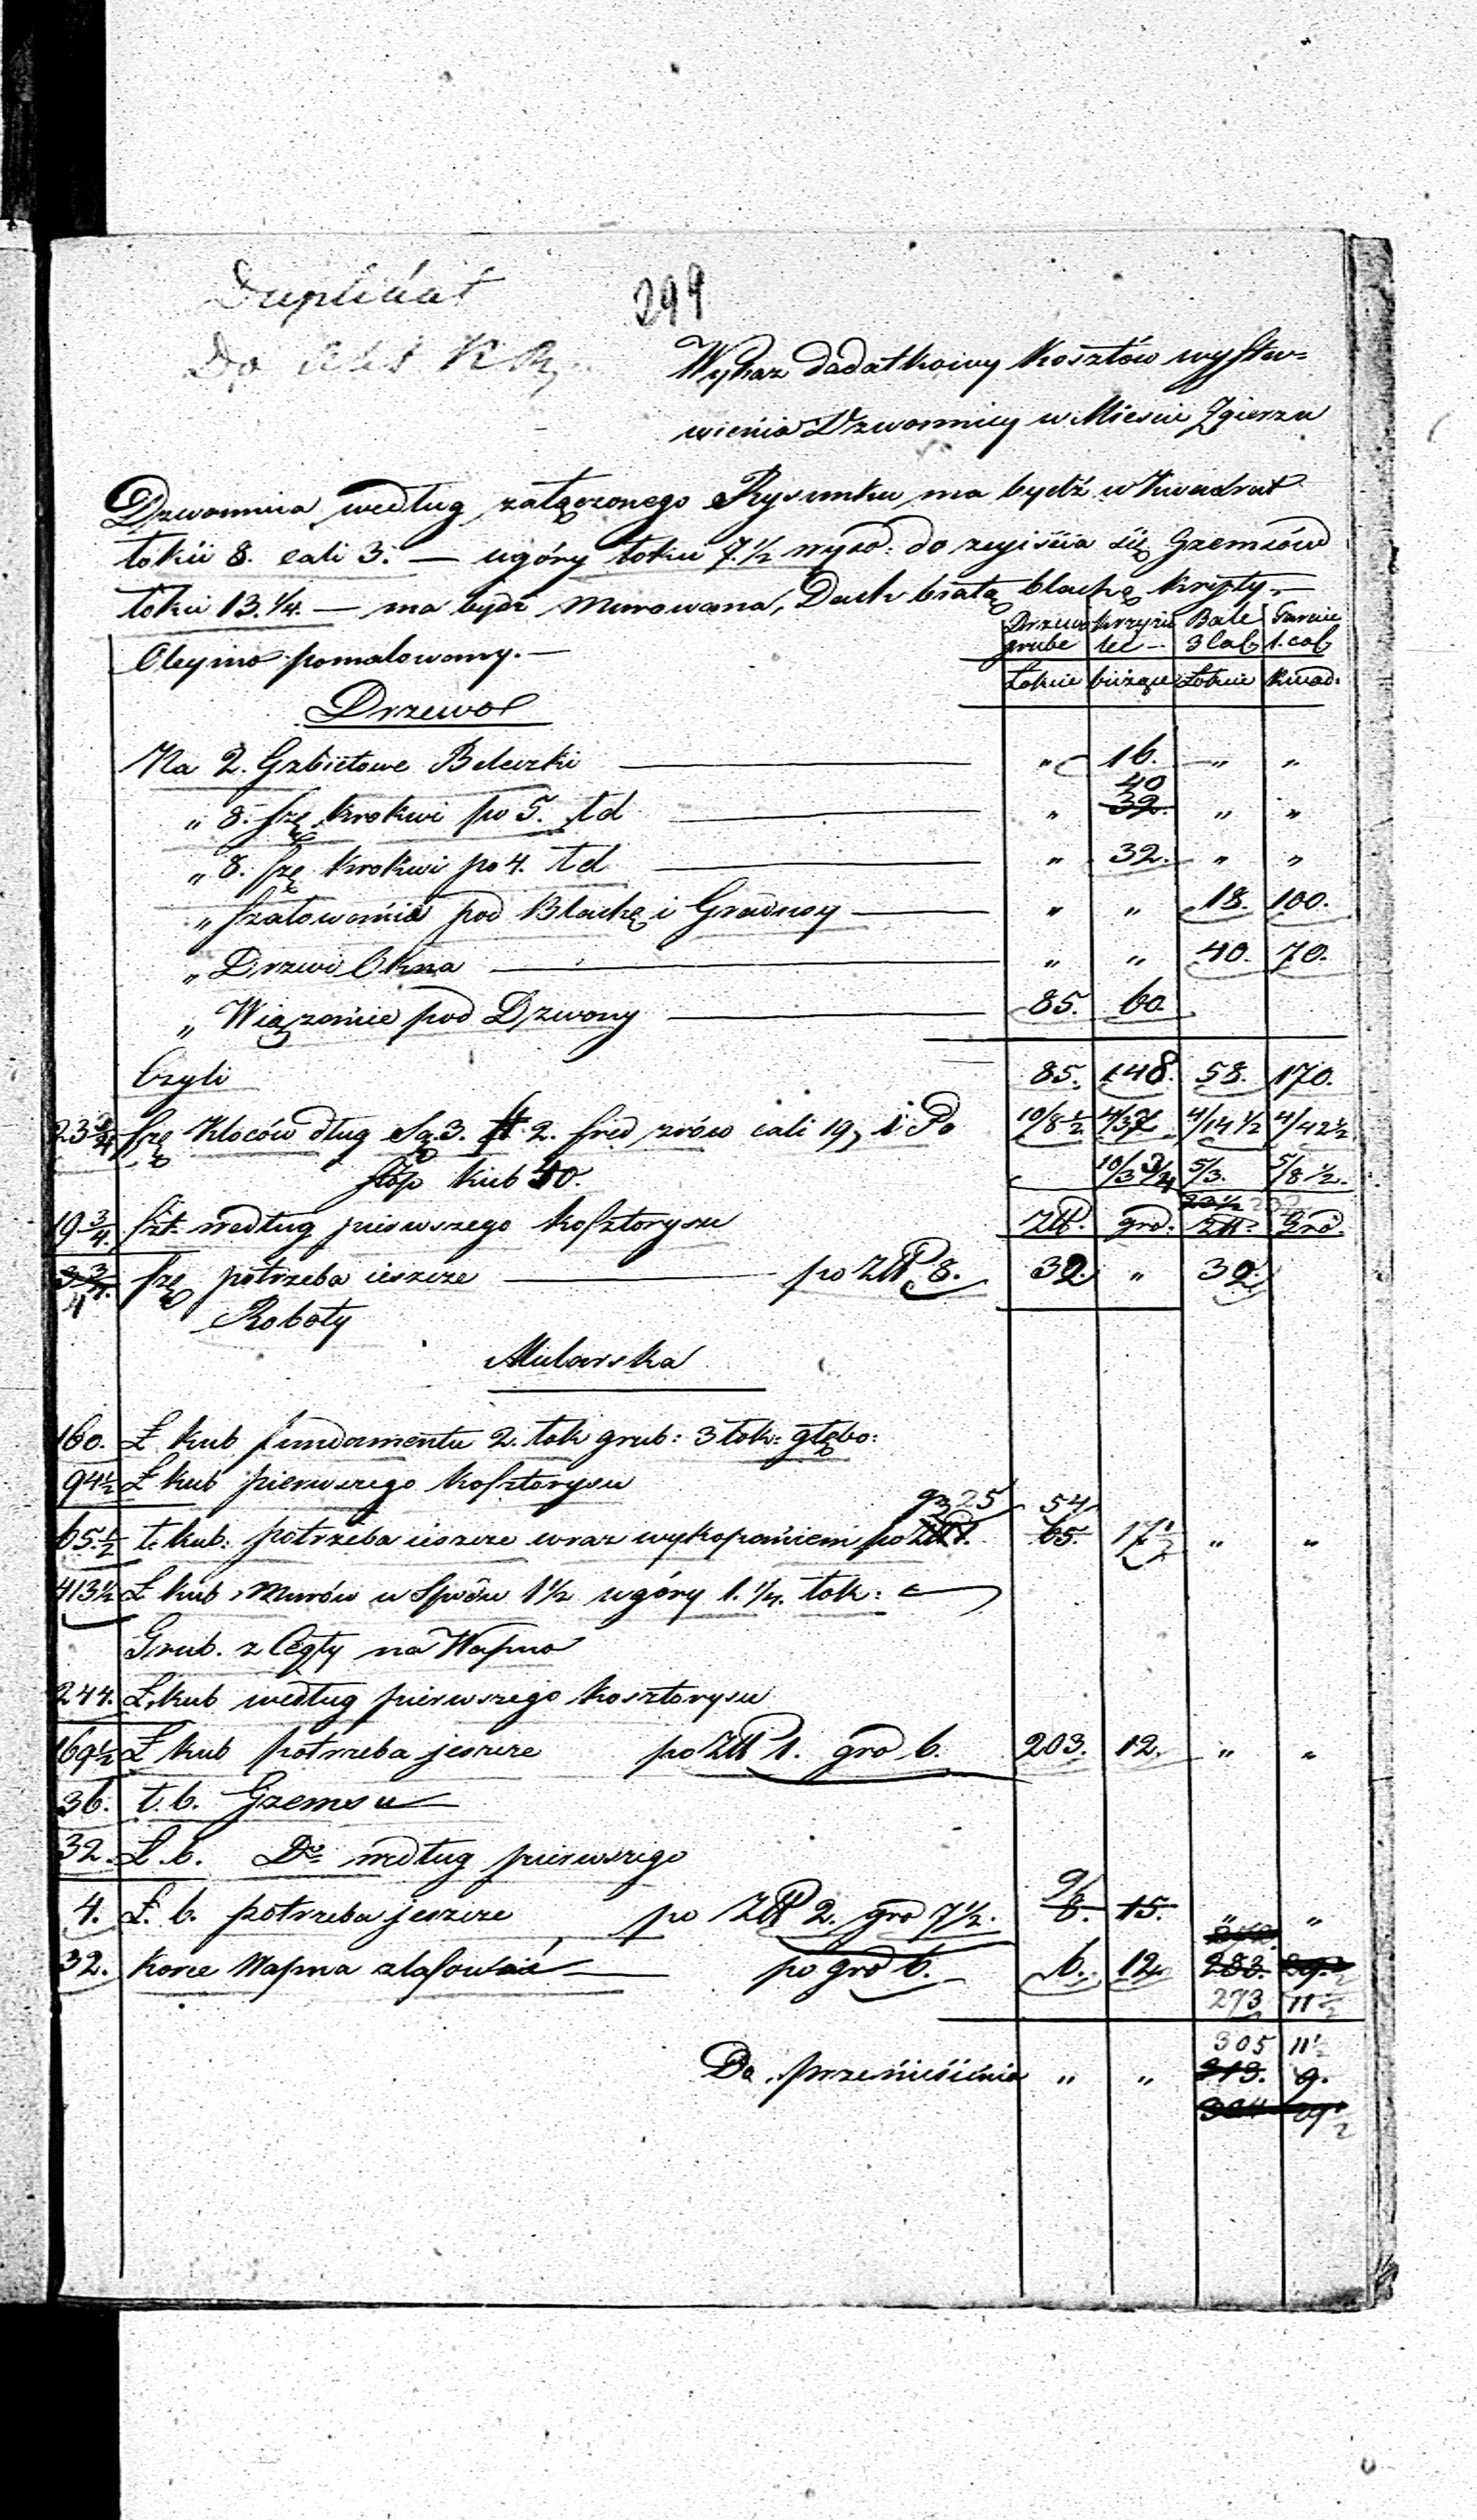 Duplikat
299
Do Akt
Wykaz dodatkowy Kosztów wysta=
wienia Dzwonnicy w Mieście Zgierzu
Dzwonnica według załączonego Rysunku ma bydź w Kwadrat
łokci 8. cali 3. — ugóry łokci 7.½ wyso: do zeyiścia się Gzemsów
łokci 13.¼. — ma bydź murowana, Dach białą blachą kryty. —
Oleyino pomalowany. —
Drzewo grube | krzyżu lec — | Bale 3 cal | Tarcice 1. cal
Łokcie | bieżące | Łokcie | Kwad:
Drzewo
Na 2. Grzbietowe Beleczki — " 16. " "
" 8. szę krokwi po 5. łd — " 40 32. " "
" 8. szę krokwi po 4. łd — " 32. " "
" szalowania pod Blachę i — " " 18. 100.
" Drzwi Okna — " " 40. 70.
" Wiązanie pod Dzwony — 85. 60.
Czyli 85. 148. 58. 170.
23¾ szę Kloców dług Są. 3. st. 2. śred zrów cali 19, i Po 10/8½ 4/37 4/14½ 4/42½
stóp kub 40. 10/3¾ 5/3. 5/8½.
19¾. szt. według pierwszego kosztorysu Złt. gro: Złt. Gro.
3¾. 4 szę potrzeba ieszcze — po Złt 8. 32. " 32.
Roboty
Mularska
160. Ł kub fundamentu 2. łok grub: 3 łok: głębo:
94½ Ł kub pierwszego kosztorysu
gr 25 54
65.½ ł. kub: potrzeba ieszcze wraz wykopaniem po Złt 1. 65. 17½ " "
413½ Ł kub Murów w Spodu 1½ ugóry 1.¼. łok:
Grub. z Cegły na Wapno
244. Ł. kub według pierwszego kosztorysu
169½ Ł kub potrzeba jeszcze po Złt 1. gro 6. 203. 12. " "
36. ł. b. Gzemsu
32. Ł. b. Do według pierwszego
4. Ł. b. potrzeba jeszcze po Złt 2. gro 7½. 9/8. 15. " "
32. korce Wapna zlasować — po gro 6. 6. 12. 283.
273 11½
305 11½
Do przeniesienia " " 313. 9.